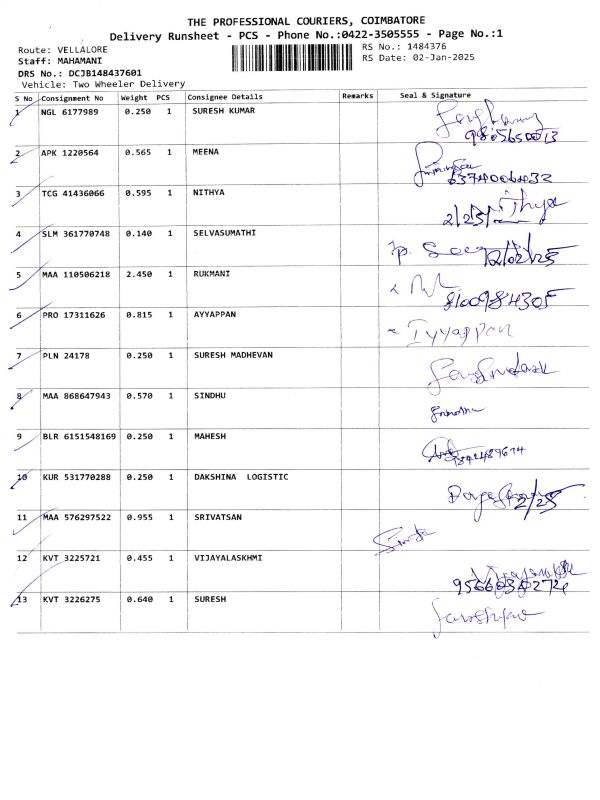 THE PROFESSIONAL COURIERS, COIMBATORE
Delivery Runsheet - PCS - Phone No.:0422-3505555 - Page No.:1
Route: VELLALORE
RS No.: 1484376
Staff: MAHAMANI
RS Date: 02-Jan-2025
DRS No.: DCJB148437601
Vehicle: Two Wheeler Delivery
S No Consignment No Weight PCS Consignee Details Remarks Seal & Signature
1 NGL 6177989 0.250 1 SURESH KUMAR
2 APK 1220564 0.565 1 MEENA
3 TCG 41436066 0.595 1 NITHYA Nithya
4 SLM 361770748 0.140 1 SELVASUMATHI
5 MAA 110506218 2.450 1 RUKMANI
8100984305
6 PRO 17311626 0.815 1 AYYAPPAN Iyyappan
7 PLN 24178 0.250 1 SURESH MADHEVAN
8 MAA 868647943 0.570 1 SINDHU
9 BLR 6151548169 0.250 1 MAHESH
10 KUR 531770288 0.250 1 DAKSHINA LOGISTIC
11 MAA 576297522 0.955 1 SRIVATSAN
12 KVT 3225721 0.455 1 VIJAYALASKHMI
13 KVT 3226275 0.640 1 SURESH